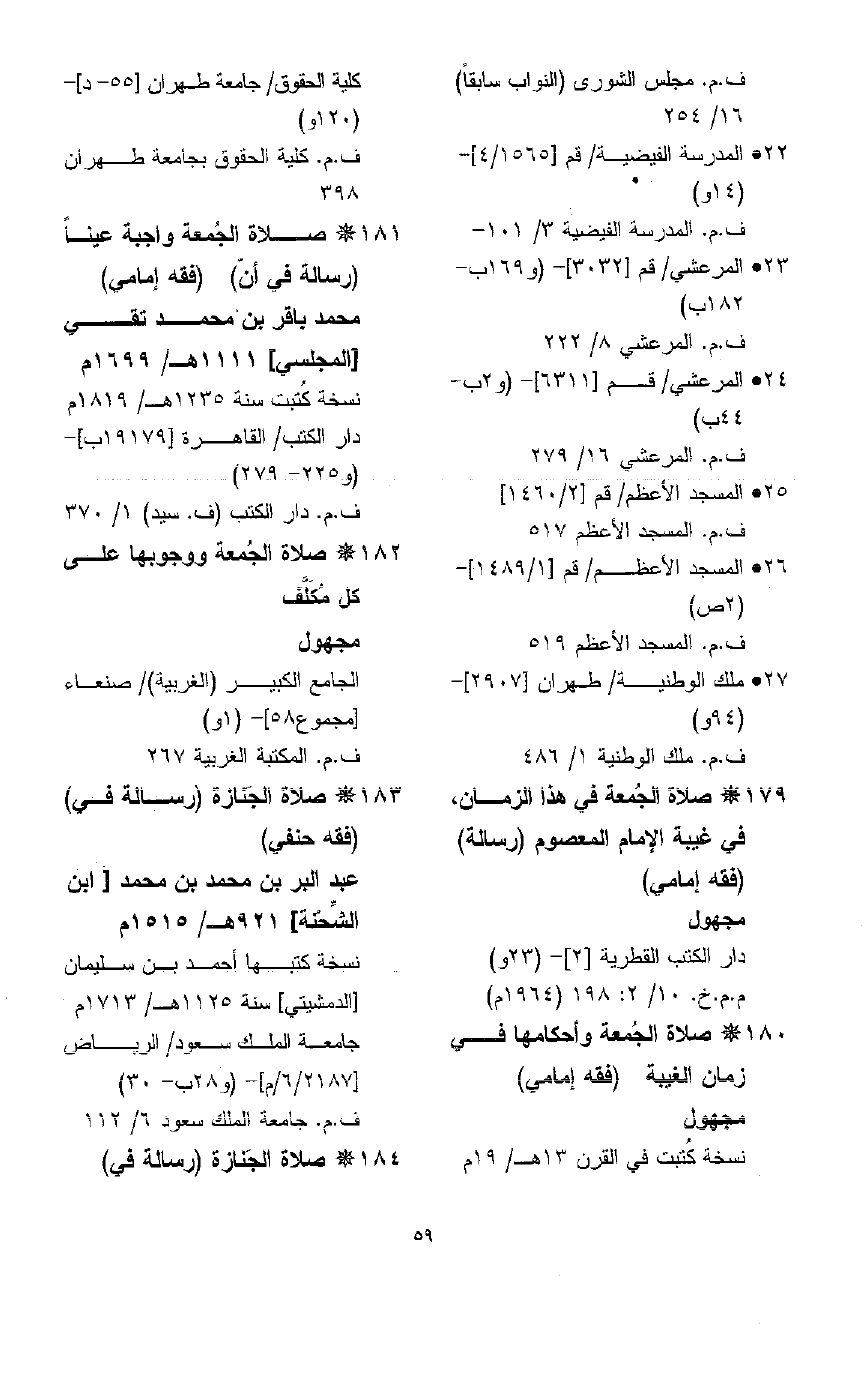 ف.م. مجلس الشورى (النواب سابقاً)
١٦/ ٢٥٤
٢٢• المدرسة الفيضية/ قم [٤/١٥٦٥]-
(١٤و)
ف.م. المدرسة الفيضية ٣/ ١٠١-
٢٣• المرعشي/ قم [٣٠٣٢]- (و١٦٩ب-
١٨٢ب)
ف.م. المرعشي ٨/ ٢٢٢
٢٤• المرعشي/ قم [٦٣١١]- (و٢ب-
٤٤ب)
ف.م. المرعشي ١٦/ ٢٧٩
٢٥• المسجد الأعظم/ قم [١٤٦٠/٢]
ف.م. المسجد الأعظم ٥١٧
٢٦• المسجد الأعظم/ قم [١٤٨٩/١]-
(٢ص)
ف.م. المسجد الأعظم ٥١٩
٢٧• ملك الوطنية/ طهران [٢٩٠٧]-
(٩٤و)
ف.م. ملك الوطنية ١/ ٤٨٦
١٧٩* صلاة الجُمعة في هذا الزمان،
في غيبة الإمام المعصوم (رسالة)
(فقه إمامي)
مجهول
دار الكتب القطرية [٢]- (٢٣و)
م.م.خ. ١٠/ ٢: ١٩٨ (١٩٦٤م)
١٨٠* صلاة الجُمعة وأحكامها في
زمان الغيبة (فقه إمامي)
مجهول
نسخة كُتبت في القرن ١٣هـ/ ١٩م
كلية الحقوق/ جامعة طهران [٥٥- د]-
(١٢٠و)
ف.م. كلية الحقوق بجامعة طهران
٣٩٨
١٨١* صلاة الجُمعة واجبة عيناً
(رسالة في أنّ) (فقه إمامي)
محمد باقر بن محمد تقي
[المجلسي] ١١١١هـ/ ١٦٩٩م
نسخة كُتبت سنة ١٢٣٥هـ/ ١٨١٩م
دار الكتب/ القاهرة [١٩١٧٩ب]-
(و٢٢٥- ٢٧٩)
ف.م. دار الكتب (ف. سيد) ١/ ٣٧٠
١٨٢* صلاة الجُمعة ووجوبها على
كل مُكَلَّف
مجهول
الجامع الكبير (الغربية)/ صنعاء
[مجموع٥٨]- (١و)
ف.م. المكتبة الغربية ٢٦٧
١٨٣* صلاة الجَنازة (رسالة في)
(فقه حنفي)
عبد البر بن محمد بن محمد [ ابن
الشِّحْنة] ٩٢١هـ/ ١٥١٥م
نسخة كتبها أحمد بن سليمان
[الدمشيتي] سنة ١١٢٥هـ/ ١٧١٣م
جامعة الملك سعود/ الرياض
[٢١٨٧/٦/م]- (و٢٨ب- ٣٠)
ف.م. جامعة الملك سعود ٦/ ١١٢
١٨٤* صلاة الجَنازة (رسالة في)
٥٩